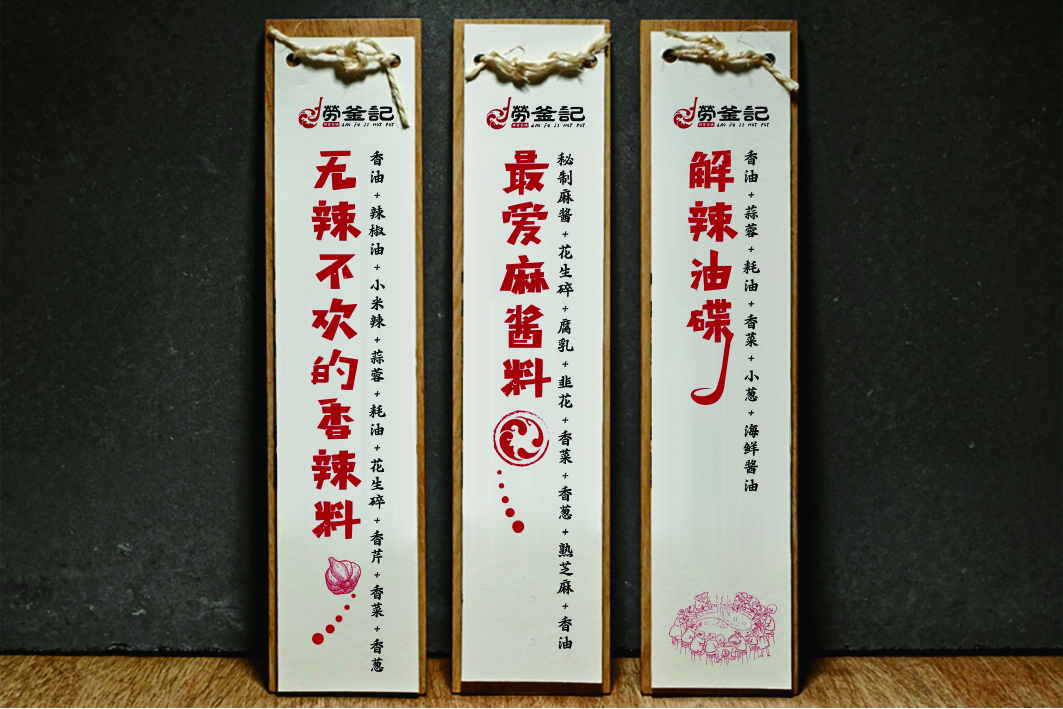 勞釜記
LAO FU JI HOT POT
无辣不欢的香辣料
香油+辣椒油+小米辣+蒜蓉+耗油+花生碎+香芹+香菜+香葱
勞釜記
LAO FU JI HOT POT
最爱麻酱料
秘制麻酱+花生碎+腐乳+韭花+香菜+香葱+熟芝麻+香油
勞釜記
LAO FU JI HOT POT
解辣油碟
香油+蒜蓉+耗油+香菜+小葱+海鲜酱油